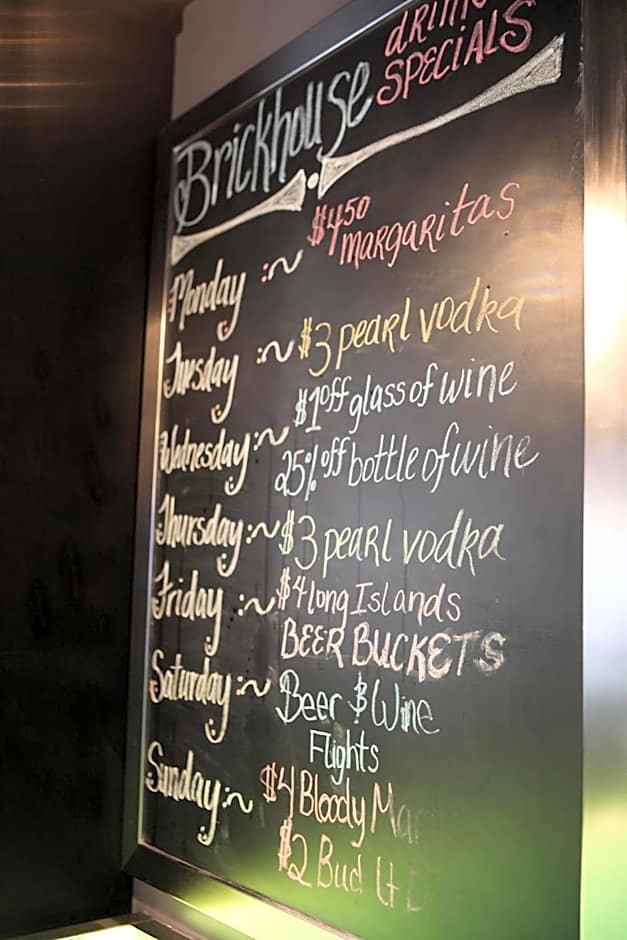 Brickhouse DRINK SPECIALS
Monday :~ $4.50 MARGARITAS
Tuesday :~ $3 pearl vodka
Wednesday :~ $1 off glass of wine
25% off bottle of wine
Thursday :~ $3 pearl vodka
Friday :~ $4 long Islands
BEER BUCKETS
Saturday :~ Beer & Wine
Flights
Sunday :~ $4 Bloody
$2 Bud Lt